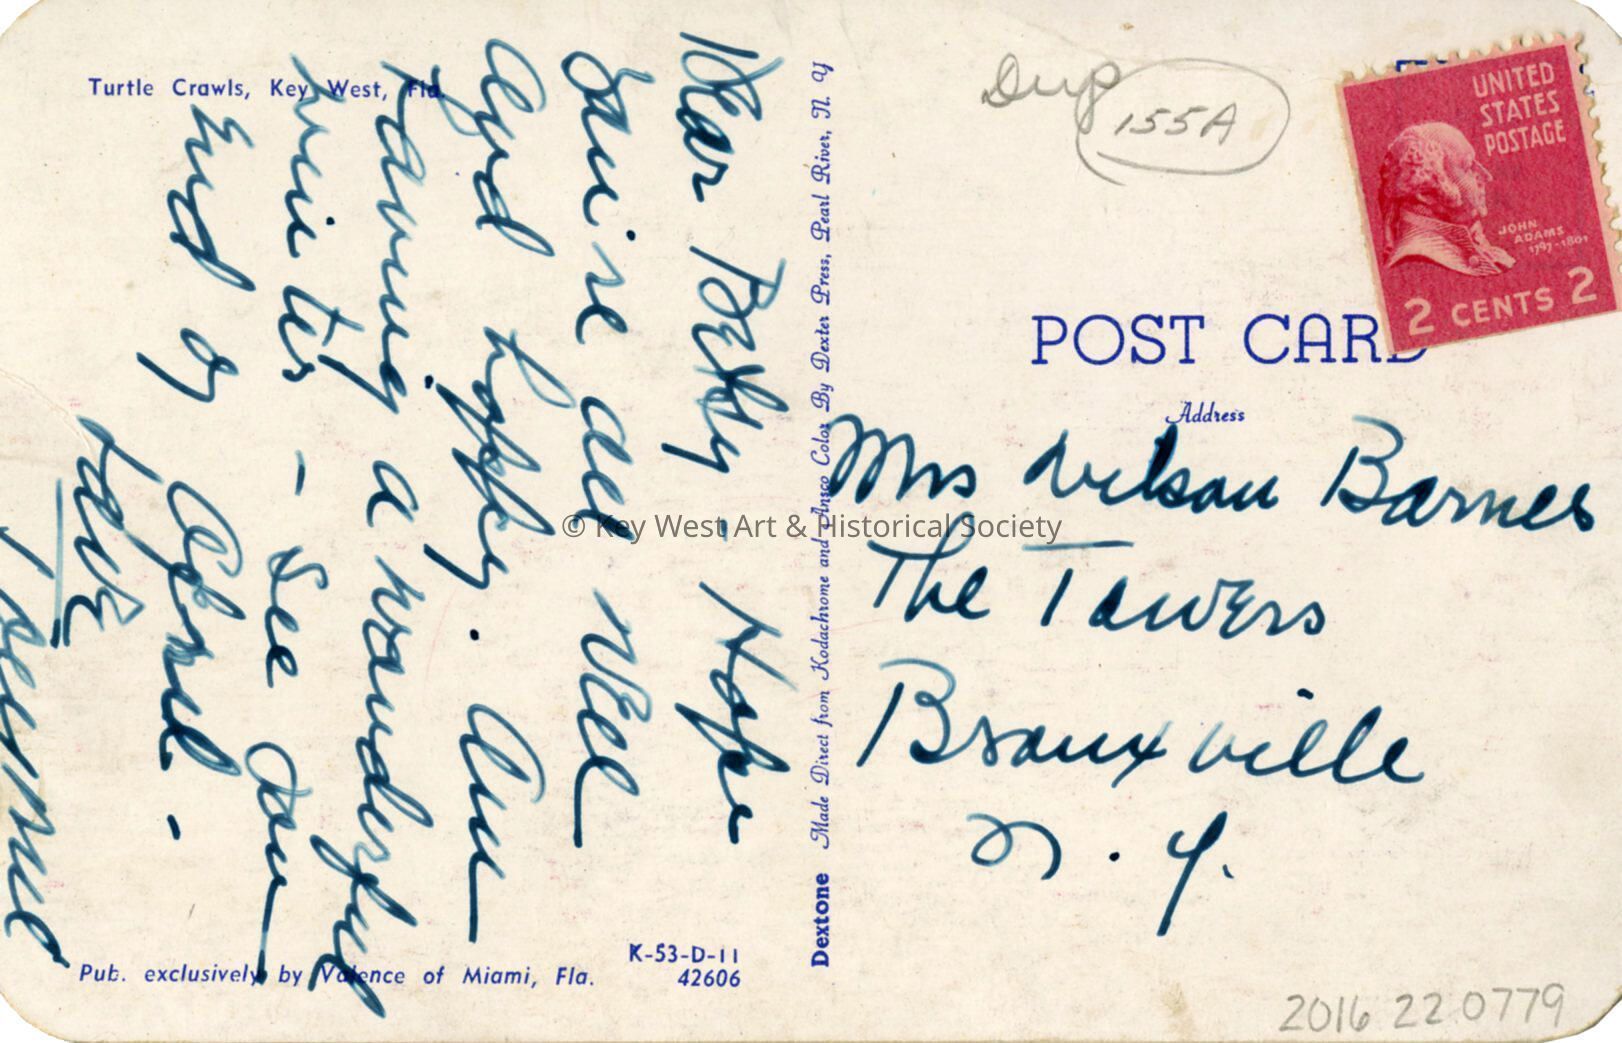 Turtle Crawls, Key West, Fla.
Dear Betsy - Hope
you're all well
and happy. Am
having a wonderful
winter - See you
End of April -
Love
Dup
155A
UNITED
STATES
POSTAGE
JOHN
ADAMS
1797-1801
2 CENTS 2
POST CARD
Address
Mrs Nelson Barnes
The Towers
Bronxville
N. Y.
Dextone Made Direct from Kodachrome and Ansco Color By Dexter Press, Pearl River, N. Y
K-53-D-11
42606
Pub. exclusively by Valence of Miami, Fla.
2016 22 0779
© Key West Art & Historical Society